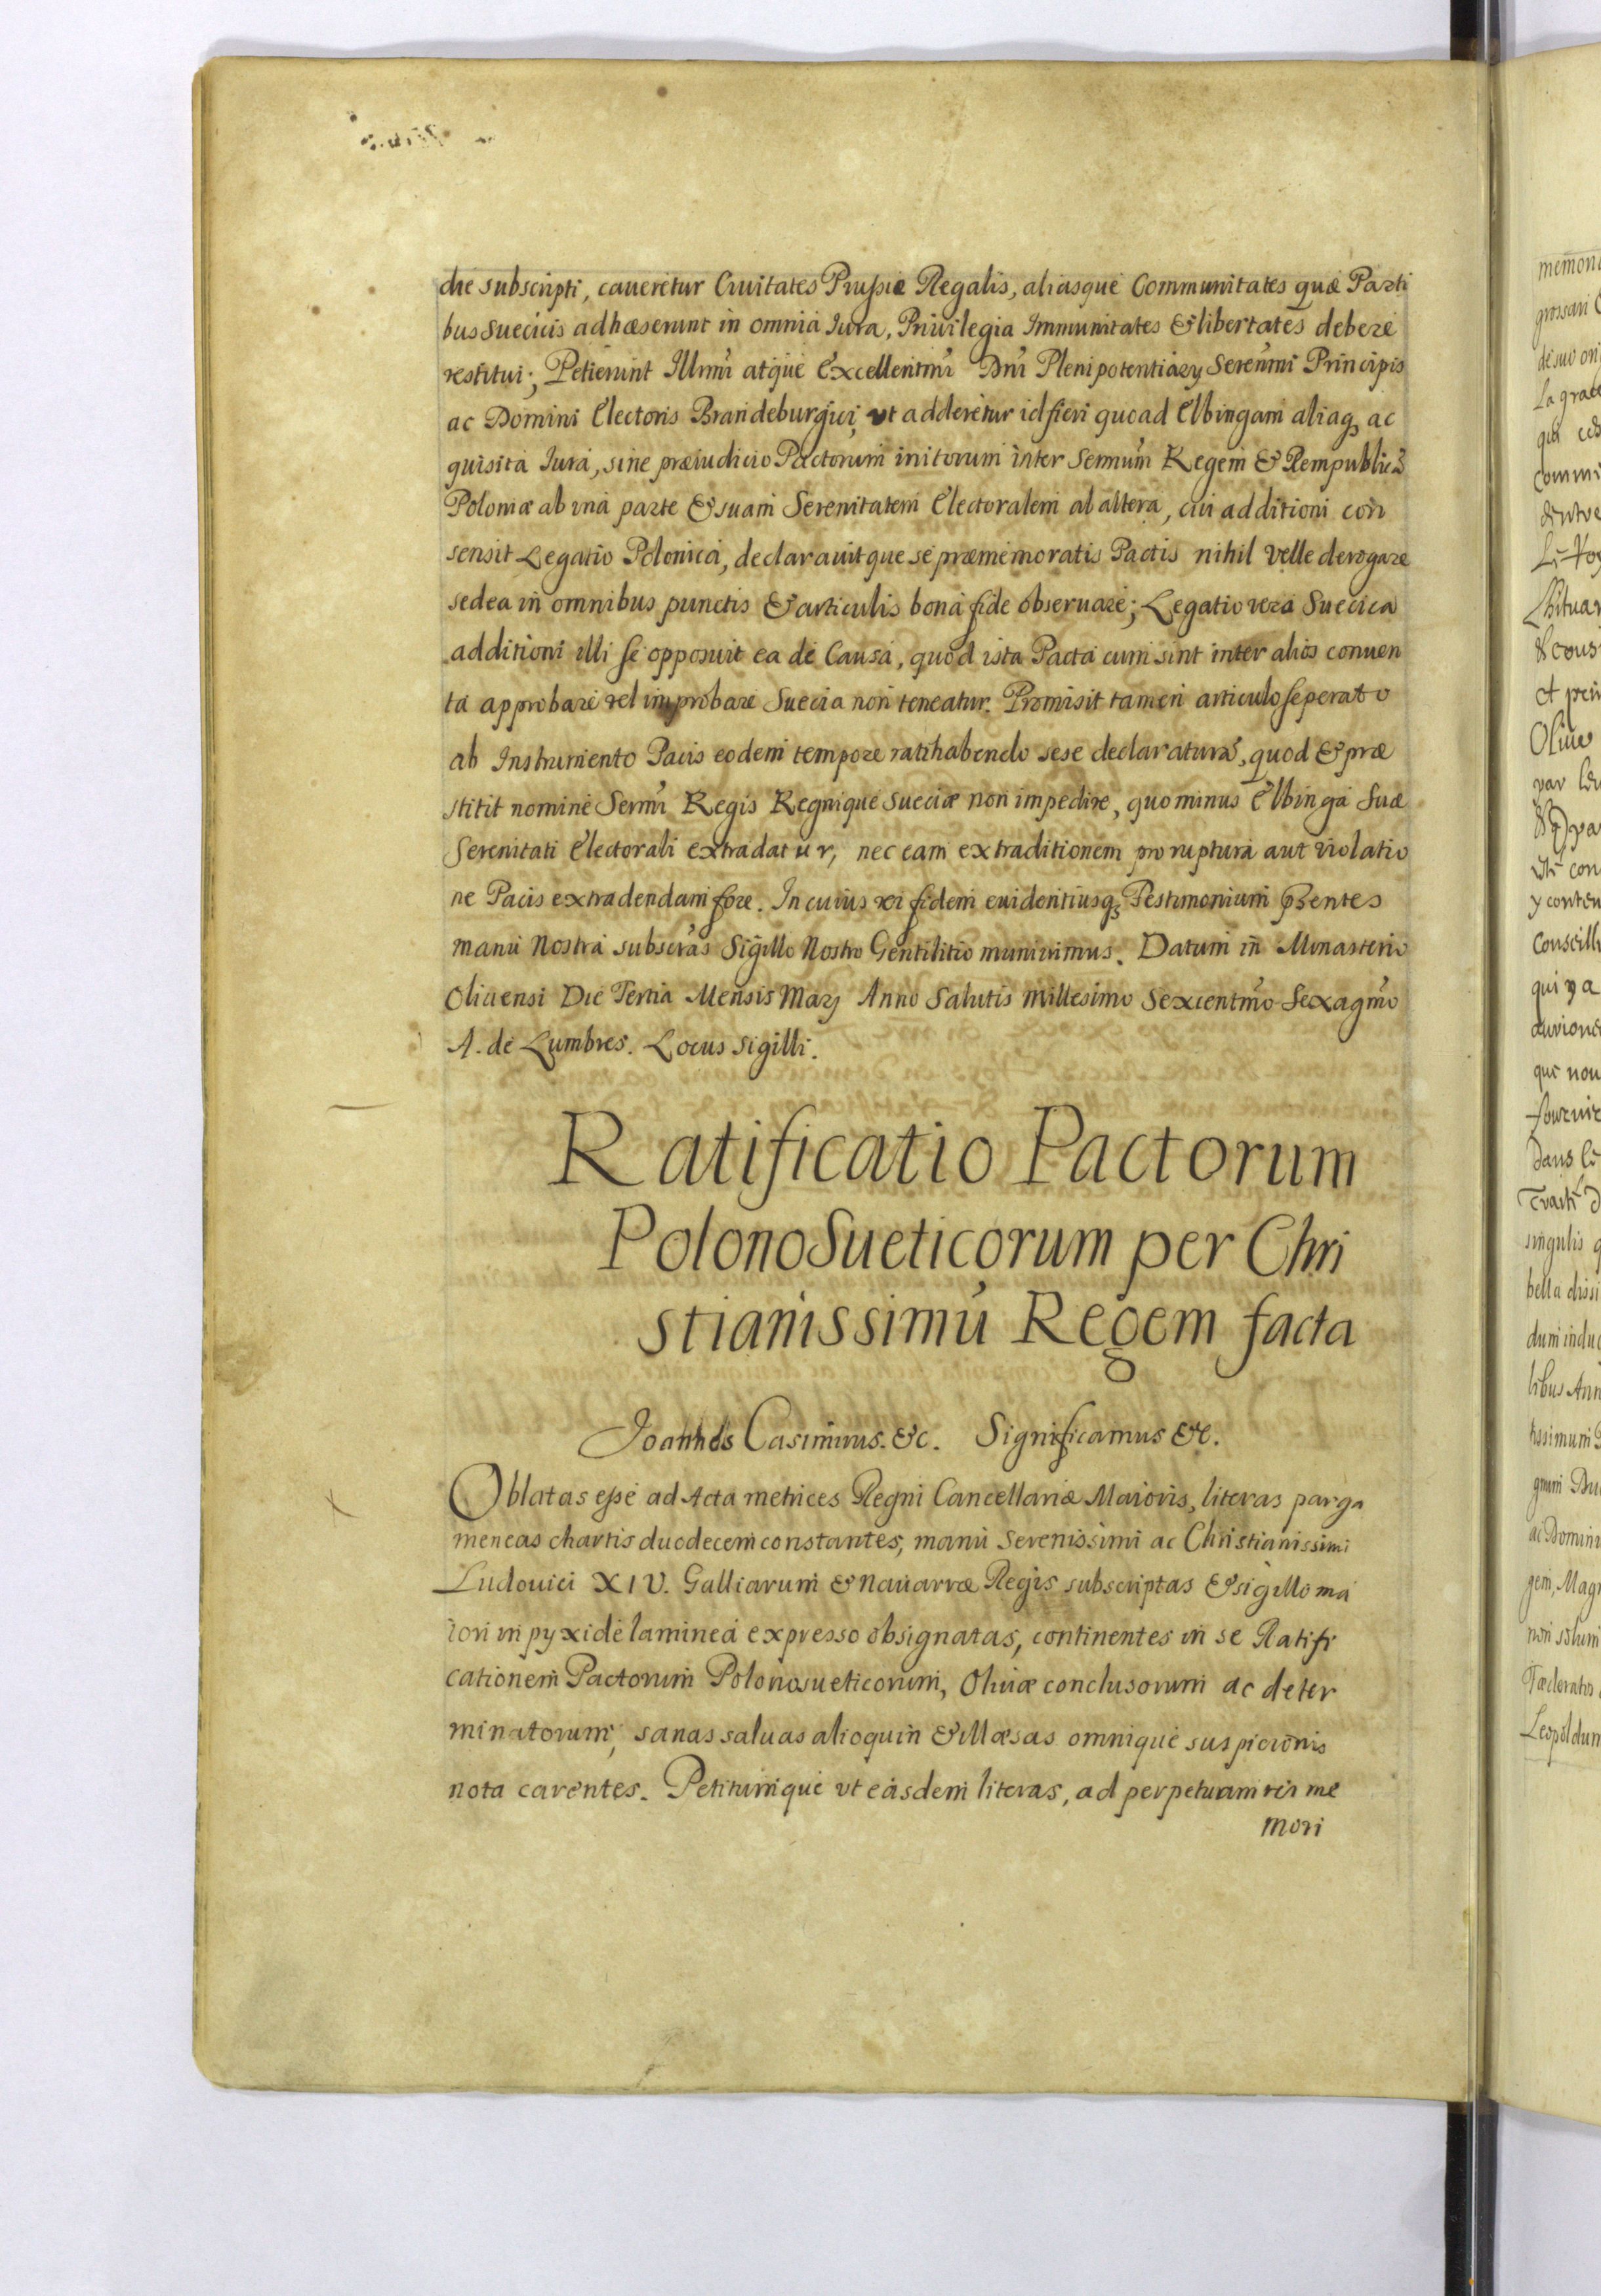 die subscripti, caueretur Ciuitates Prussiæ Regalis, aliasque Communitates quæ Parti
bus Suecicis adhæserunt in omnia Iura, Priuilegia Immunitates & libertates debere
restitui; Petierunt Illmi atque Excellentmi Dni Plenipotentiary Serenmi Principis
ac Domini Electoris Brandeburgici, vt adderetur id fieri quoad Elbingam aliaq3 ac
quisita Iura, sine præiudicio Pactorum initorum inter Sermum Regem & Rempublicā
Poloniæ ab vna parte & suam Serenitatem Electoralem ab altera, cui additioni con
sensit Legatio Polonica, declarauitque se præmemoratis Pactis nihil velle derogare
sed ea in omnibus punctis & articulis bona fide obseruare; Legatio vera Suecica
additioni illi se opposuit ea de Causa, quod ista Pacta cum sint inter alios conuen
ta approbare vel improbare Suecia non teneatur. Promisit tamen articulo seperato
ab Instrumento Pacis eodem tempore ratihabendo sese declaraturā, quod & præ
stitit nomine Sermi Regis Regnique Sueciæ non impedire, quo minus Elbinga Suæ
Serenitati Electorali extradatur, nec eam extraditionem pro ruptura aut violatio
ne Pacis extradendam fore. In cuius rei fidem euidentiusq3 Testimonium pñtes
manu Nostra subscras Sigillo Nostro Gentilitio muniuimus. Datum in Monasterio
Oliuensi Die Tertia Mensis May Anno Salutis Millesimo Sexcentmo Sexagmo
A. de Lumbres. Locus Sigilli.
Ratificatio Pactorum
PolonoSueticorum per Chri
stianissimū Regem facta
Joannes Casimirus. &c. Significamus &c.
Oblatas esse ad Acta metrices Regni Cancellariæ Maioris, literas parga
meneas chartis duodecem constantes, manu Serenissimi ac Christianissimi
Ludouici XIV. Galliarum & Nauarræ Regis subscriptas & sigillo ma
iori in pyxide laminea expresso obsignatas, continentes in se Ratifi
cationem Pactorum Polonosueticorum, Oliuæ conclusorum ac deter
minatorum, sanas saluas alioquin & illæsas omnique suspicionis
nota carentes. Petitumque vt easdem literas, ad perpetuam rei me
mori